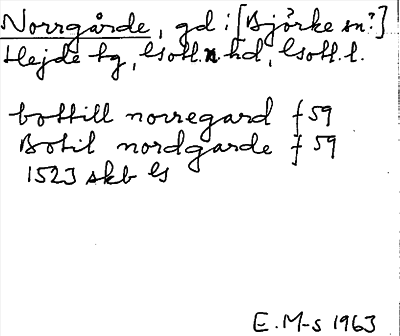 Norrgårde, gd i [Björke sn?]
Hejde tg, Gotl. n hd, Gotl. l.
bottill norregard f 59
Botil nordgarde f 59
1523 skb G
E. M-s 1963